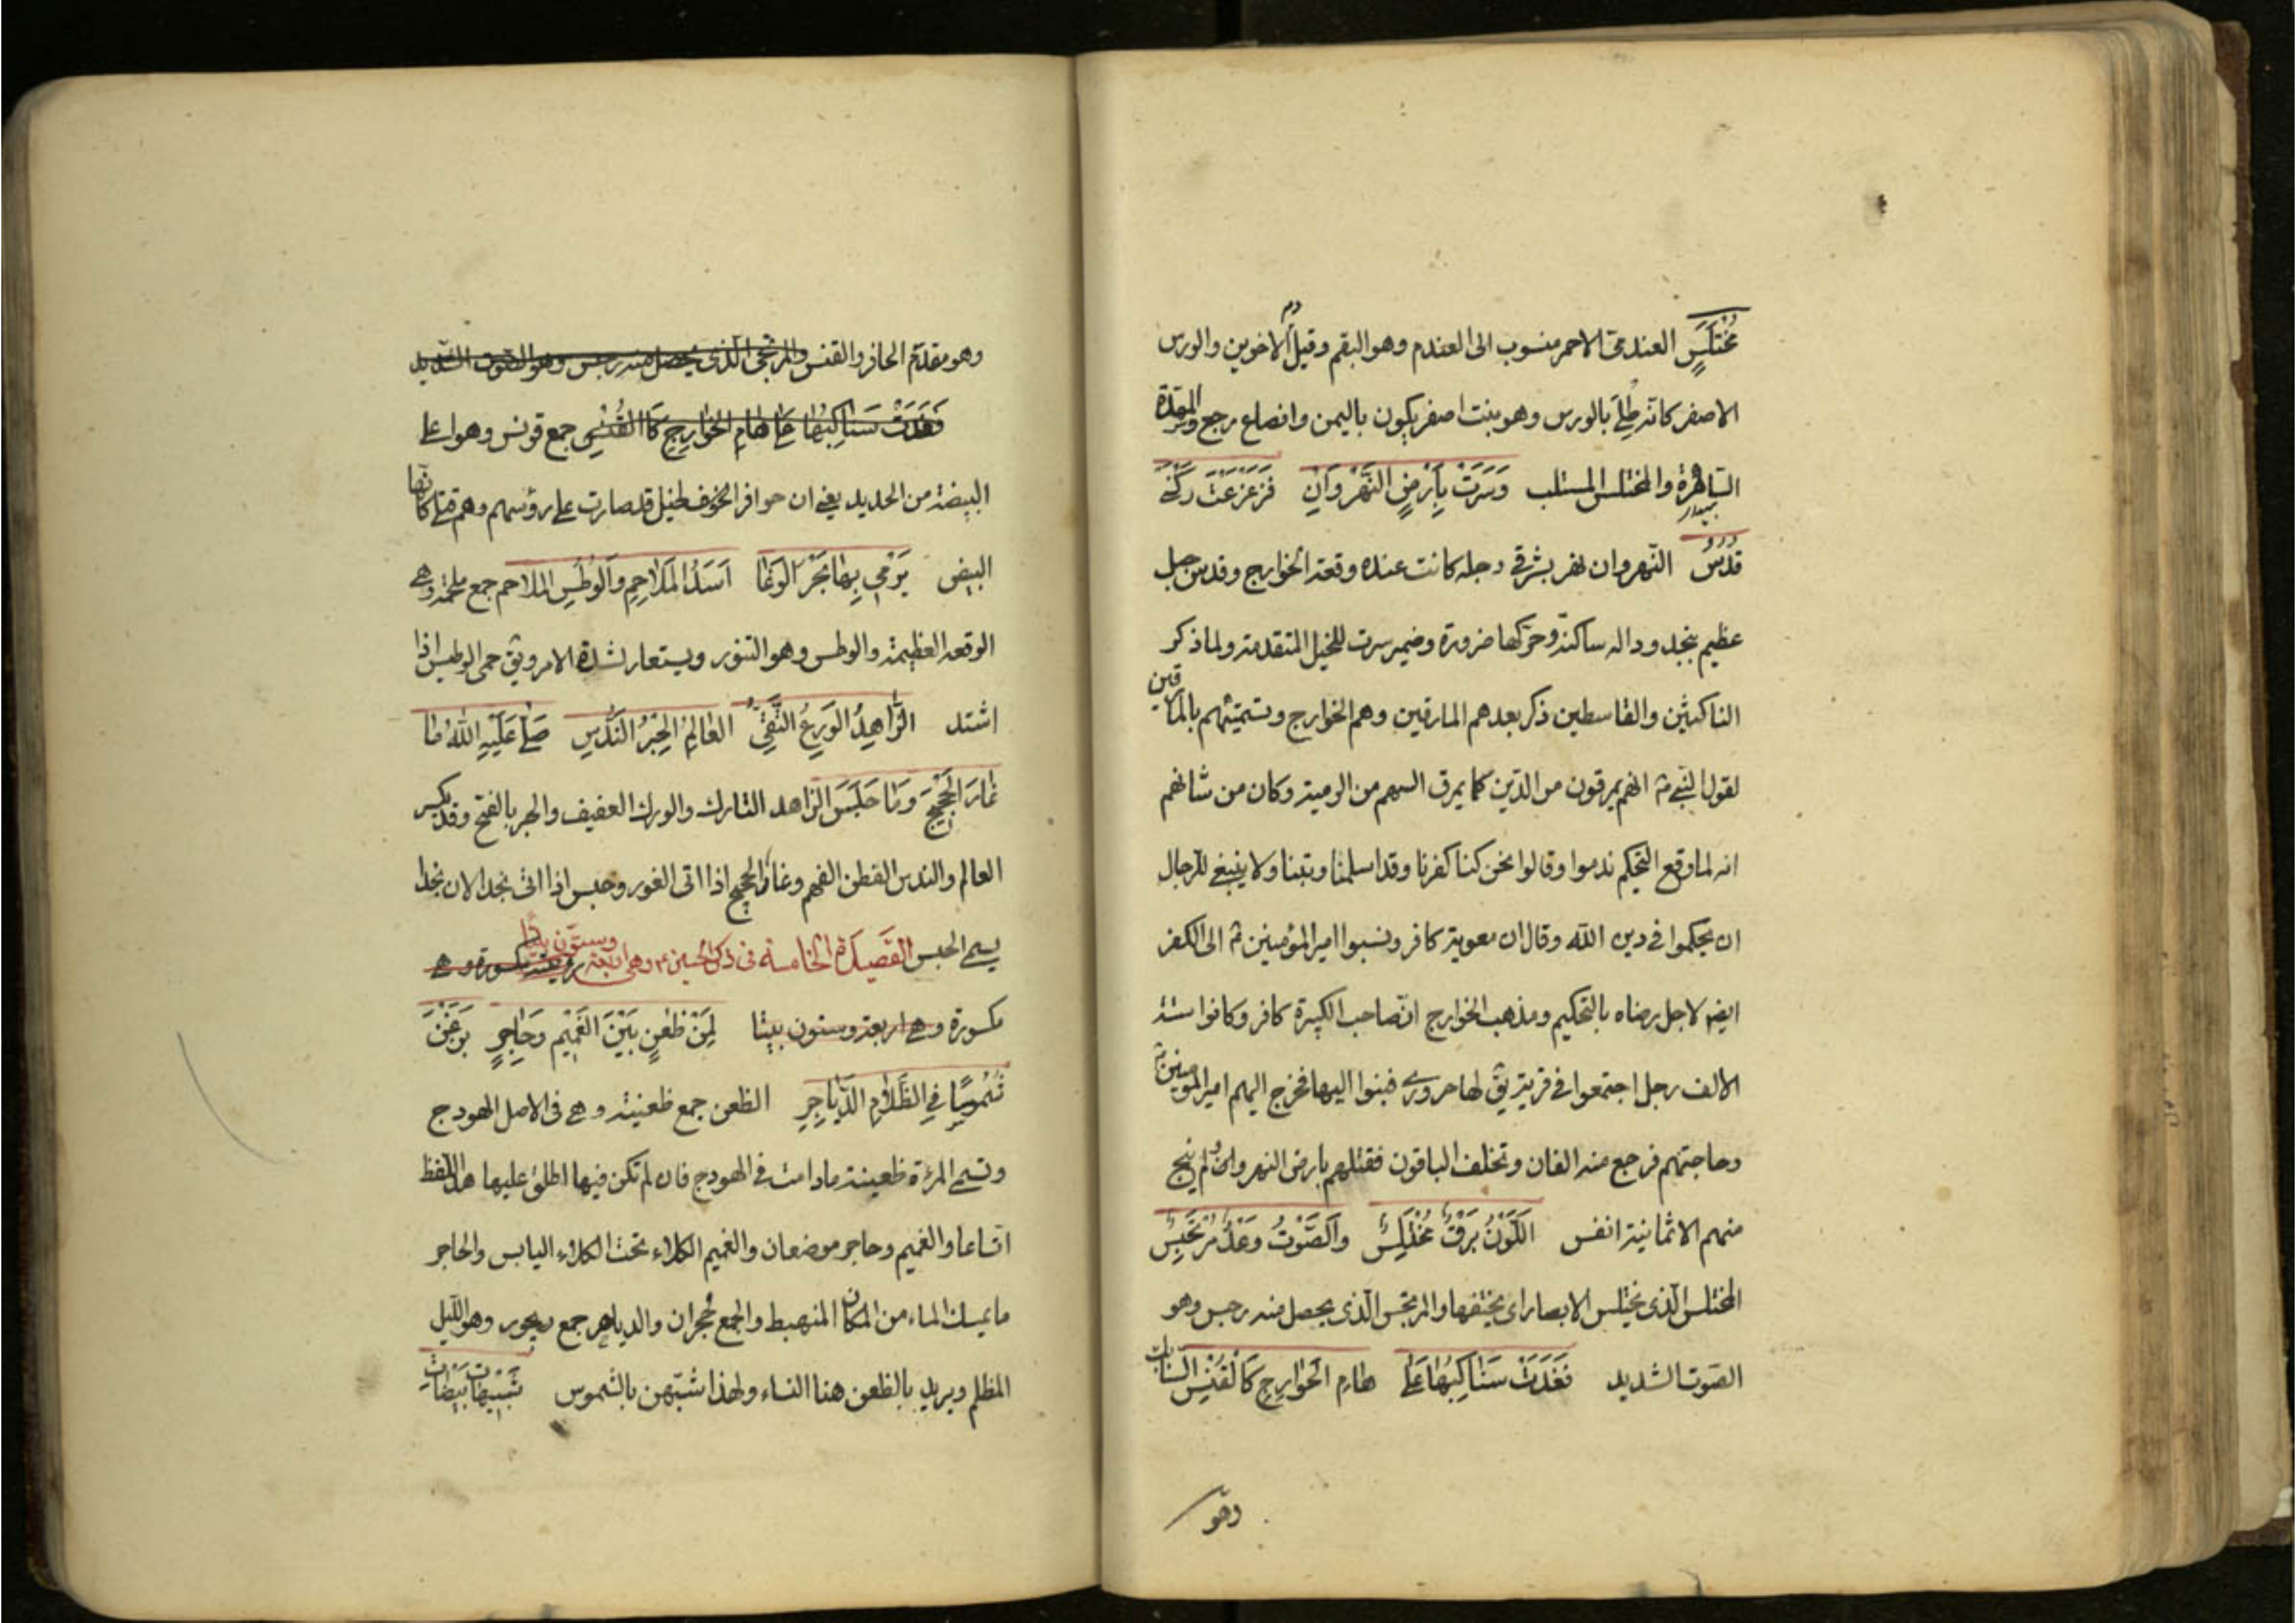 مُخْتَلَسٍ العندمىّ الاحمر منسوب الى العندم وهو البقم وقيل دم الاخوين والورس
الاصفر كانه طُلِىَ بالورس وهو نبت اصفر يكون باليمن وانصاع رجع
والمختلس المستلب وَسَرَتْ بِاَرْضِ النَّهْرَوَانِ فَزَعْزَعَتْ رُكْنَىْ
قُدُسُ النّهروان نهر بشرقى دجله كانت عنده وقعة الخوارج وقدس جبل
عظيم بنجد وداله ساكنة وحرّكها ضرورة وضمير سرت للخيل المتقدمة ولما ذكر
الناكثين والقاسطين ذكر بعدهم المارقين وهم الخوارج وتسميتهم بالمارقين
لقول النبى انهم يمرقون من الدّين كما يمرق السهم من الرمية وكان من شانهم
انه لما وقع التحكيم ندموا وقالوا نحن كنا كفرنا وقد اسلمنا وتبنا ولا ينبغى للرجال
ان يحكموا فى دين الله وقال ان معوية كافر ونسبوا امير المؤمنين الى الكفر
ايضا لاجل رضاه بالتحكيم ومذهب الخوارج انّ صاحب الكبيرة كافر وكانوا ستة
الالف رجل اجتمعوا فى قرية يق لها حرورى فخرج اليهم امير المومنين
وحاجتهم فرجع منه الفان وتخلف الباقون فقتلهم بارض النهروان ولم ينج
منهم الا ثمانية انفس اَلْلَّوْنُ بَرْقٌ مُخْتَلِسٌ وَالصَّوْتُ رَعْدٌ مُرْتَجِسٌ
المختلس الّذى يختلس الابصار اى يختفها والمرتجس الّذى يحصل منه رجس وهو
الصّوت الشديد فَغَدَتْ سَنَابِكِهَا عَلَى هَامِ الْخَوَارِجِ كَالْقُنُسِ السنابك
وهو
وهو مقدّم الحافر والقنس والمرتجى الّذى يحصل منه رجس وهو الصّوت الشّديد
فَغَدَتْ سَنَابِكِهَا عَلَى هَامِ الْخَوَارِجِ كَاالْقُنُسِ جمع قونس وهو اعلى
البيضة من الحديد يعنى ان حوافر لخيل قد صارت على رؤسهم وهم قتلى كانّها
البيض يَرْمِى بِهَا بَحْرَ الْوَغَا اَسَدُ الْمَلَاحِمِ وَالْوُطُسِ الملاحم جمع ملحمة وهى
الوقعه العظيمة والوطس وهو التنور ويستعار لشدة الامر ويق حمى الوطيس اذا
اشتد الزَّاهِدُ الْوَرِعُ التَّقِىُّ الْعَالِمُ الْحِبْرُ النَّدُسِ صَلَّى عَلَيْهِ اللهُ مَا
غَارَ الْحَجِيجُ وَمَا جَلَسَ الزاهد التارك والورع العفيف والحبر بالفتح وقد يكسر
العالم والندس الفطن الفهم وغار الحجيج اذا اتى الغور وجلس اذا اتى نجد الان نجدا
يسمى الجلس القَصِيدَةُ الخَامِسَة فى ذكر الحسين ع وهى اربعة وستّون بيتًا مكسورة وهى
مكسورة وهى اربعة وستون بيتا لِمَنْ ظُعُنٍ بَيْنَ الْغَمِيمِ وَحَاجِرٍ بَزَغْنَ
شُمُوسًا فِى الظَّلَامِ الدَّيَاجِرِ الظعن جمع ظعينة وهى فى الاصل الهودج
وتسمى المرءة ظعينة مادامت فى الهودج فان لم تكن فيها اطلق عليها هذا اللفظ
اتساعا والغميم وحاجر موضعان والغميم الكلاء تحت الكلاء اليابس والحاجر
ما يمسك الماء من المكان المنهبط والجمع حُجران والدياجر جمع ديجور وهو الّليل
المظلم ويريد بالظعن هنا النساء ولهذا شبّههن بالشموس شَبِيهَاتِ بَيْضَاتِ